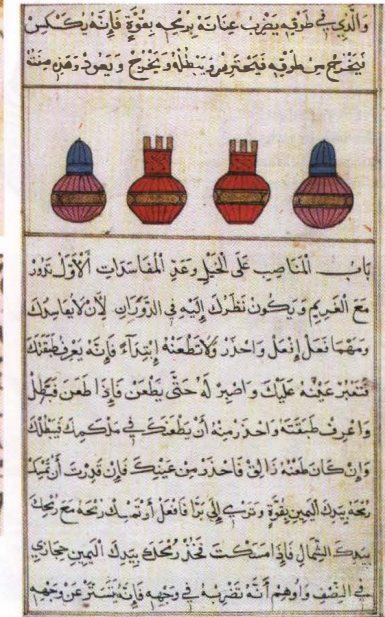 وَالَّذِي فِي طَوْقِهِ يَضْرِبُ عِنَانَهُ بِرُمْحِهِ بِقُوَّةٍ فَإِنَّهُ
فَيَخْرُجُ مِنْ طَوْقِهِ وَيَبْطُلُهُ وَيَخْرُجُ وَيَعُودُ وَهَذِهِ
بَابُ الْمَنَاصِبِ عَلَى الْخَيْلِ وَعَدِّ الْمَفَاسَدَاتِ الْأَوَّلُ تَدُورُ
مَعَ الْغَرِيمِ وَيَكُونُ نَظَرُكَ إِلَيْهِ فِي الدَّوَرَانِ لِأَنْ لَا يُفَاسِدَكَ
وَمَهْمَا فَعَلَ إِفْعَلْ وَاحْذَرْ وَلَا تَطْعَنْهُ إِبْتِدَآءً فَإِنَّهُ يَعْرِفُ طَبَقَتَكَ
عَلَيْكَ وَاصْبِرْ لَهُ حَتَّى يَطْعَنَ فَإِذَا طَعَنَ فَبَطِّلْ
وَاعْرِفْ طَبَقَتَهُ وَاحْذَرْ مِنْهُ أَنْ يَطْعَنَكَ فِي فَيُبْطِلَكَ
وَإِنْ كَانَ طَعْنُهُ فَاحْذَرْ مِنْ عَيْنَيْكَ فَإِنْ قَدِرْتَ أَنْ تَمْسِكَ
رُمْحَهُ بِيَدِكَ الْيَمِينِ بِقُوَّةٍ وَتَرْمِي إِلَى بَرَّا فَافْعَلْ أَوْ تَمْسِكْ رُمْحَهُ مَعَ رُمْحِكَ
بِيَدِكَ الشِّمَالِ فَإِذَا مَسَكْتَ فَخُذْ رُمْحَكَ بِيَدِكَ الْيَمِينِ حِجَازِي
فِي النِّصْفِ وَأَوْهِمْ أَنَّهُ تَضْرِبُهُ فِي وَجْهِهِ فَإِنَّهُ يَتَسَتَّرُ عَنْ وَجْهِهِ